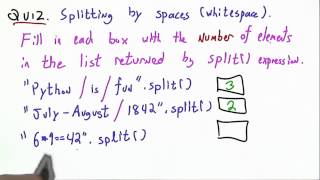 QUIZ. Splitting by spaces (whitespace).
Fill in each box with the number of elements
in the list returned by split() expression.
"Python / is / fun".split() 3
"July-August / 1842".split() 2
"6*9==42".split()